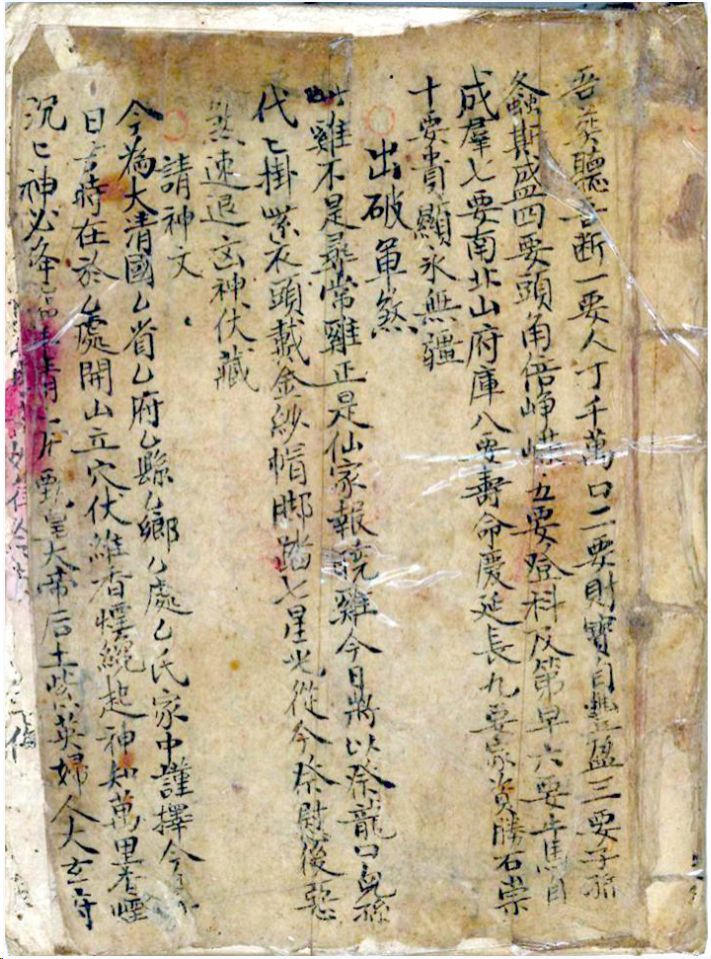 吾聽吾断一要人丁千萬口二要財寶自豐盈三要子孫
螽斯盛四要頭角倍崢嶸五要登科及第早六要牛馬自
成羣七要南北山府庫八要壽命慶延長九要家資勝石崇
十要貴顯永無疆
出破軍煞
雞不是尋常雞正是仙家報曉雞今日將以祭龍口兒孫
代〻掛紫衣頭戴金紗帽脚踏七星從今祭慰後惡
煞速退凶神伏藏
請神文
今為大清國厶省厶府厶縣厶鄉厶處厶氏家中謹擇今年
日吉時在於厶處開山立穴伏維香烟繞起神知萬里香煙
沉〻神必降臨大帝后土紫英婦人大玄